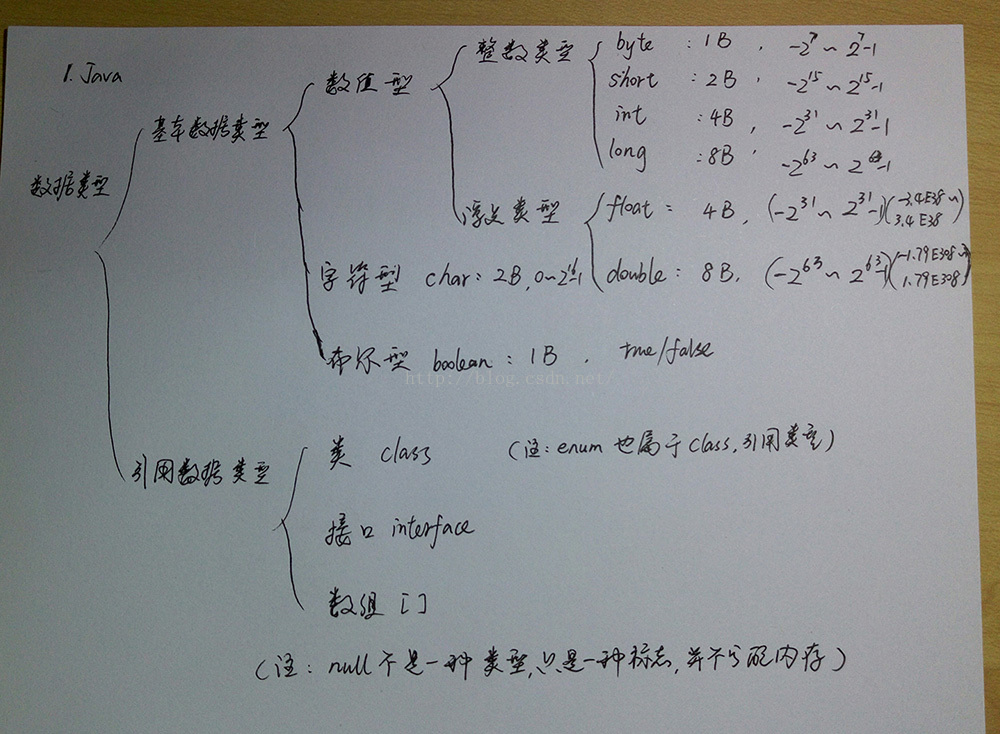 1. Java
整数类型 byte : 1B , -2^7 ~ 2^7-1
short : 2B , -2^15 ~ 2^15-1
int : 4B , -2^31 ~ 2^31-1
long : 8B , -2^63 ~ 2^63-1
数值型
基本数据类型
数据类型
浮点类型 float : 4B, (-2^31 ~ 2^31-1)(-3.4E38 ~ 3.4E38)
double : 8B, (-2^63 ~ 2^63-1)(-1.79E308 ~ 1.79E308)
字符型 char : 2B, 0~2^16-1
布尔型 boolean : 1B , true/false
http://blog.csdn.net/
引用数据类型
类 class (注: enum 也属于 class, 引用类型)
接口 interface
数组 []
(注: null 不是一种类型, 只是一种标志, 并不分配内存)